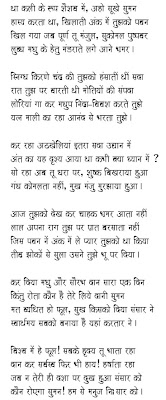 था कली के रूप शैशव में, अहो सूखे सुमन
हास्य करता था, खिलाती अंक में तुझको पवन
खिल गया जब पूर्ण तू मंजुल, सुकोमल पुष्पवर
लुब्ध मधु के हेतु मंडराते लगे आने भ्रमर।
स्निग्ध किरणे चंद्र की तुझको हंसातीं थीं सदा
रात तुझ पर वारती थी मोतियों की संपदा
लोरियां गा कर मधुप निंद्रा-विवश करते तुझे
यत्न माली का रहा आनंद से भरता तुझे।
कर रहा अठखेलियां इतरा सदा उद्यान में
अंत का यह दृश्य आया था कभी क्या ध्यान में ?
सो रहा अब तू धरा पर, शुष्क बिखराया हुआ
गंध कोमलता नहीं, मुख मंजु मुरझाया हुआ।
आज तुझको देख कर चाहक भ्रमर आता नहीं
लाल अपना राग तुझ पर प्रात बरसाता नहीं
जिस पवन नें अंक में ले प्यार तुझको था किया
तीव्र झोंकों से सुला उसने तुझे भू पर दिया।
कर दिया मधु और सौरभ दान सारा एक दिन
किंतु रोता कौन है तेरे लिये दानी सुमन
मत व्यथित हो फूल, सुख किसको दिया संसार ने
स्वार्थमय सबको बनाया है यहां करतार ने।
विश्व में हे फूल! सबके हृदय तू भाता रहा
दान कर सर्वस्व फिर भी हाय! हर्षाता रहा
जब न तेरी ही दशा पर दुख हुआ संसार को
कौन रोएगा सुमन! हम से मनुज निःसार को।